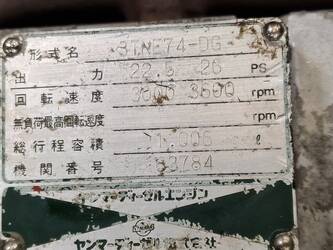 形式名 3TN 74-DG
出力 22.5 26 PS
回転速度 3000 3600 rpm
無負荷最高回転速度 rpm
総行程容積 1.006 ℓ
機関番号 3784
ヤンマーディーゼルエンジン
YANMAR
ヤンマーディーゼル株式会社